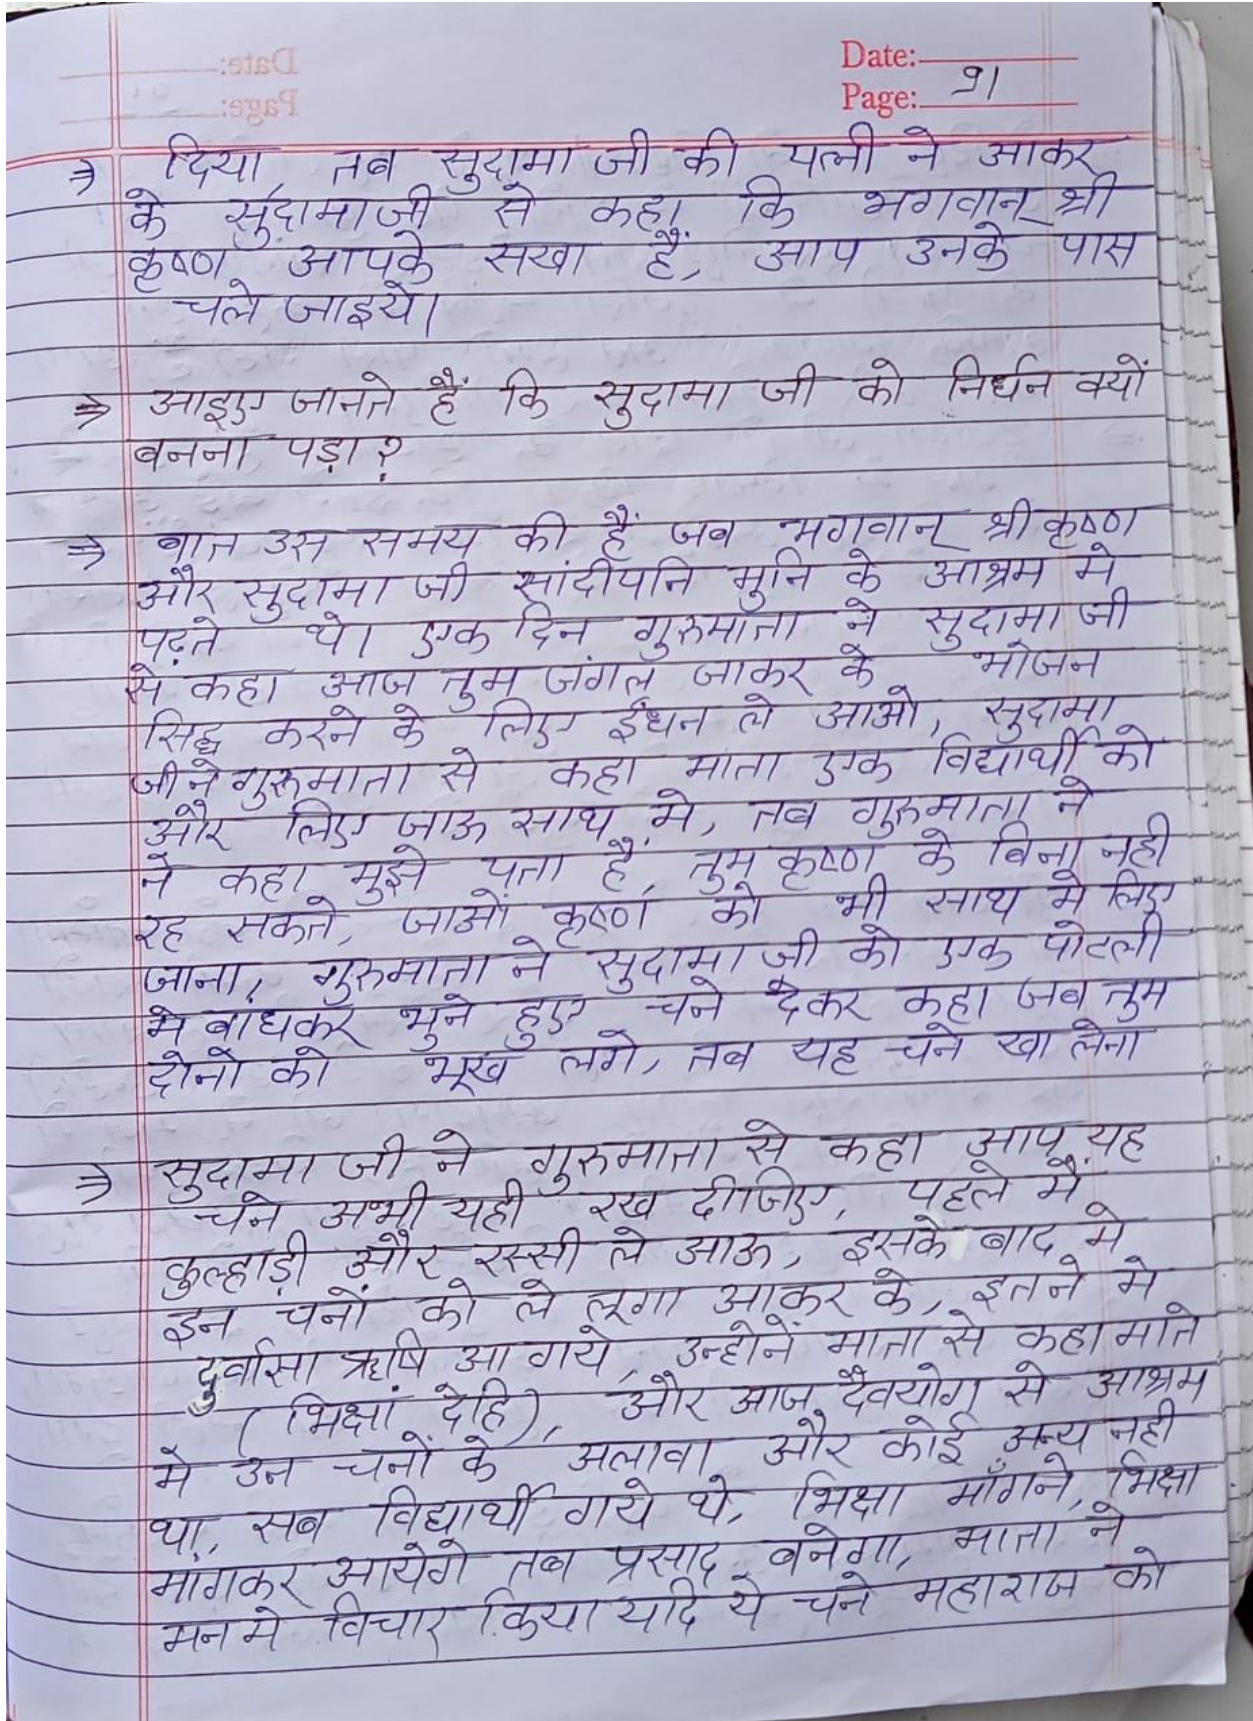 Date:
Page: 91
⇒ दिया, तब सुदामा जी की पत्नी ने आकर
के सुदामाजी से कहा कि भगवान् श्री
कृष्ण आपके सखा हैं, आप उनके पास
चले जाइये।
⇒ आइए जानते हैं कि सुदामा जी को निर्धन क्यों
बनना पड़ा?
⇒ बात उस समय की हैं जब भगवान् श्री कृष्ण
और सुदामा जी सांदीपनि मुनि के आश्रम मे
पढ़ते थे। एक दिन गुरुमाता ने सुदामा जी
से कहा आज तुम जंगल जाकर के भोजन
सिद्ध करने के लिए ईंधन ले आओ, सुदामा
जी ने गुरुमाता से कहा माता एक विद्यार्थी को
और लिए जाऊ साथ मे, तब गुरुमाता ने
ने कहा मुझे पता हैं, तुम कृष्ण के बिना नही
रह सकते, जाओं कृष्ण को भी साथ मे लिए
जाना, गुरुमाता ने सुदामा जी को एक पोटली
मे बांधकर भुने हुए चने देकर कहा जब तुम
दोनो को भूख लगे, तब यह चने खा लेना
⇒ सुदामा जी ने गुरुमाता से कहा आप यह
चने अभी यही रख दीजिए, पहले मैं
कुल्हाड़ी और रस्सी ले आऊ, इसके बाद मे
इन चनों को ले लूगा आकर के, इतने मे
दुर्वासा ऋषि आ गये, उन्होनें माता से कहा माते
(भिक्षां देहि), और आज दैवयोग से आश्रम
मे उन चनों के अलावा और कोई अन्य नही
था, सब विद्यार्थी गये थे, भिक्षा माँगने, भिक्षा
मांगकर आयेगे तब प्रसाद बनेगा, माता ने
मन मे विचार किया यदि ये चने महाराज को